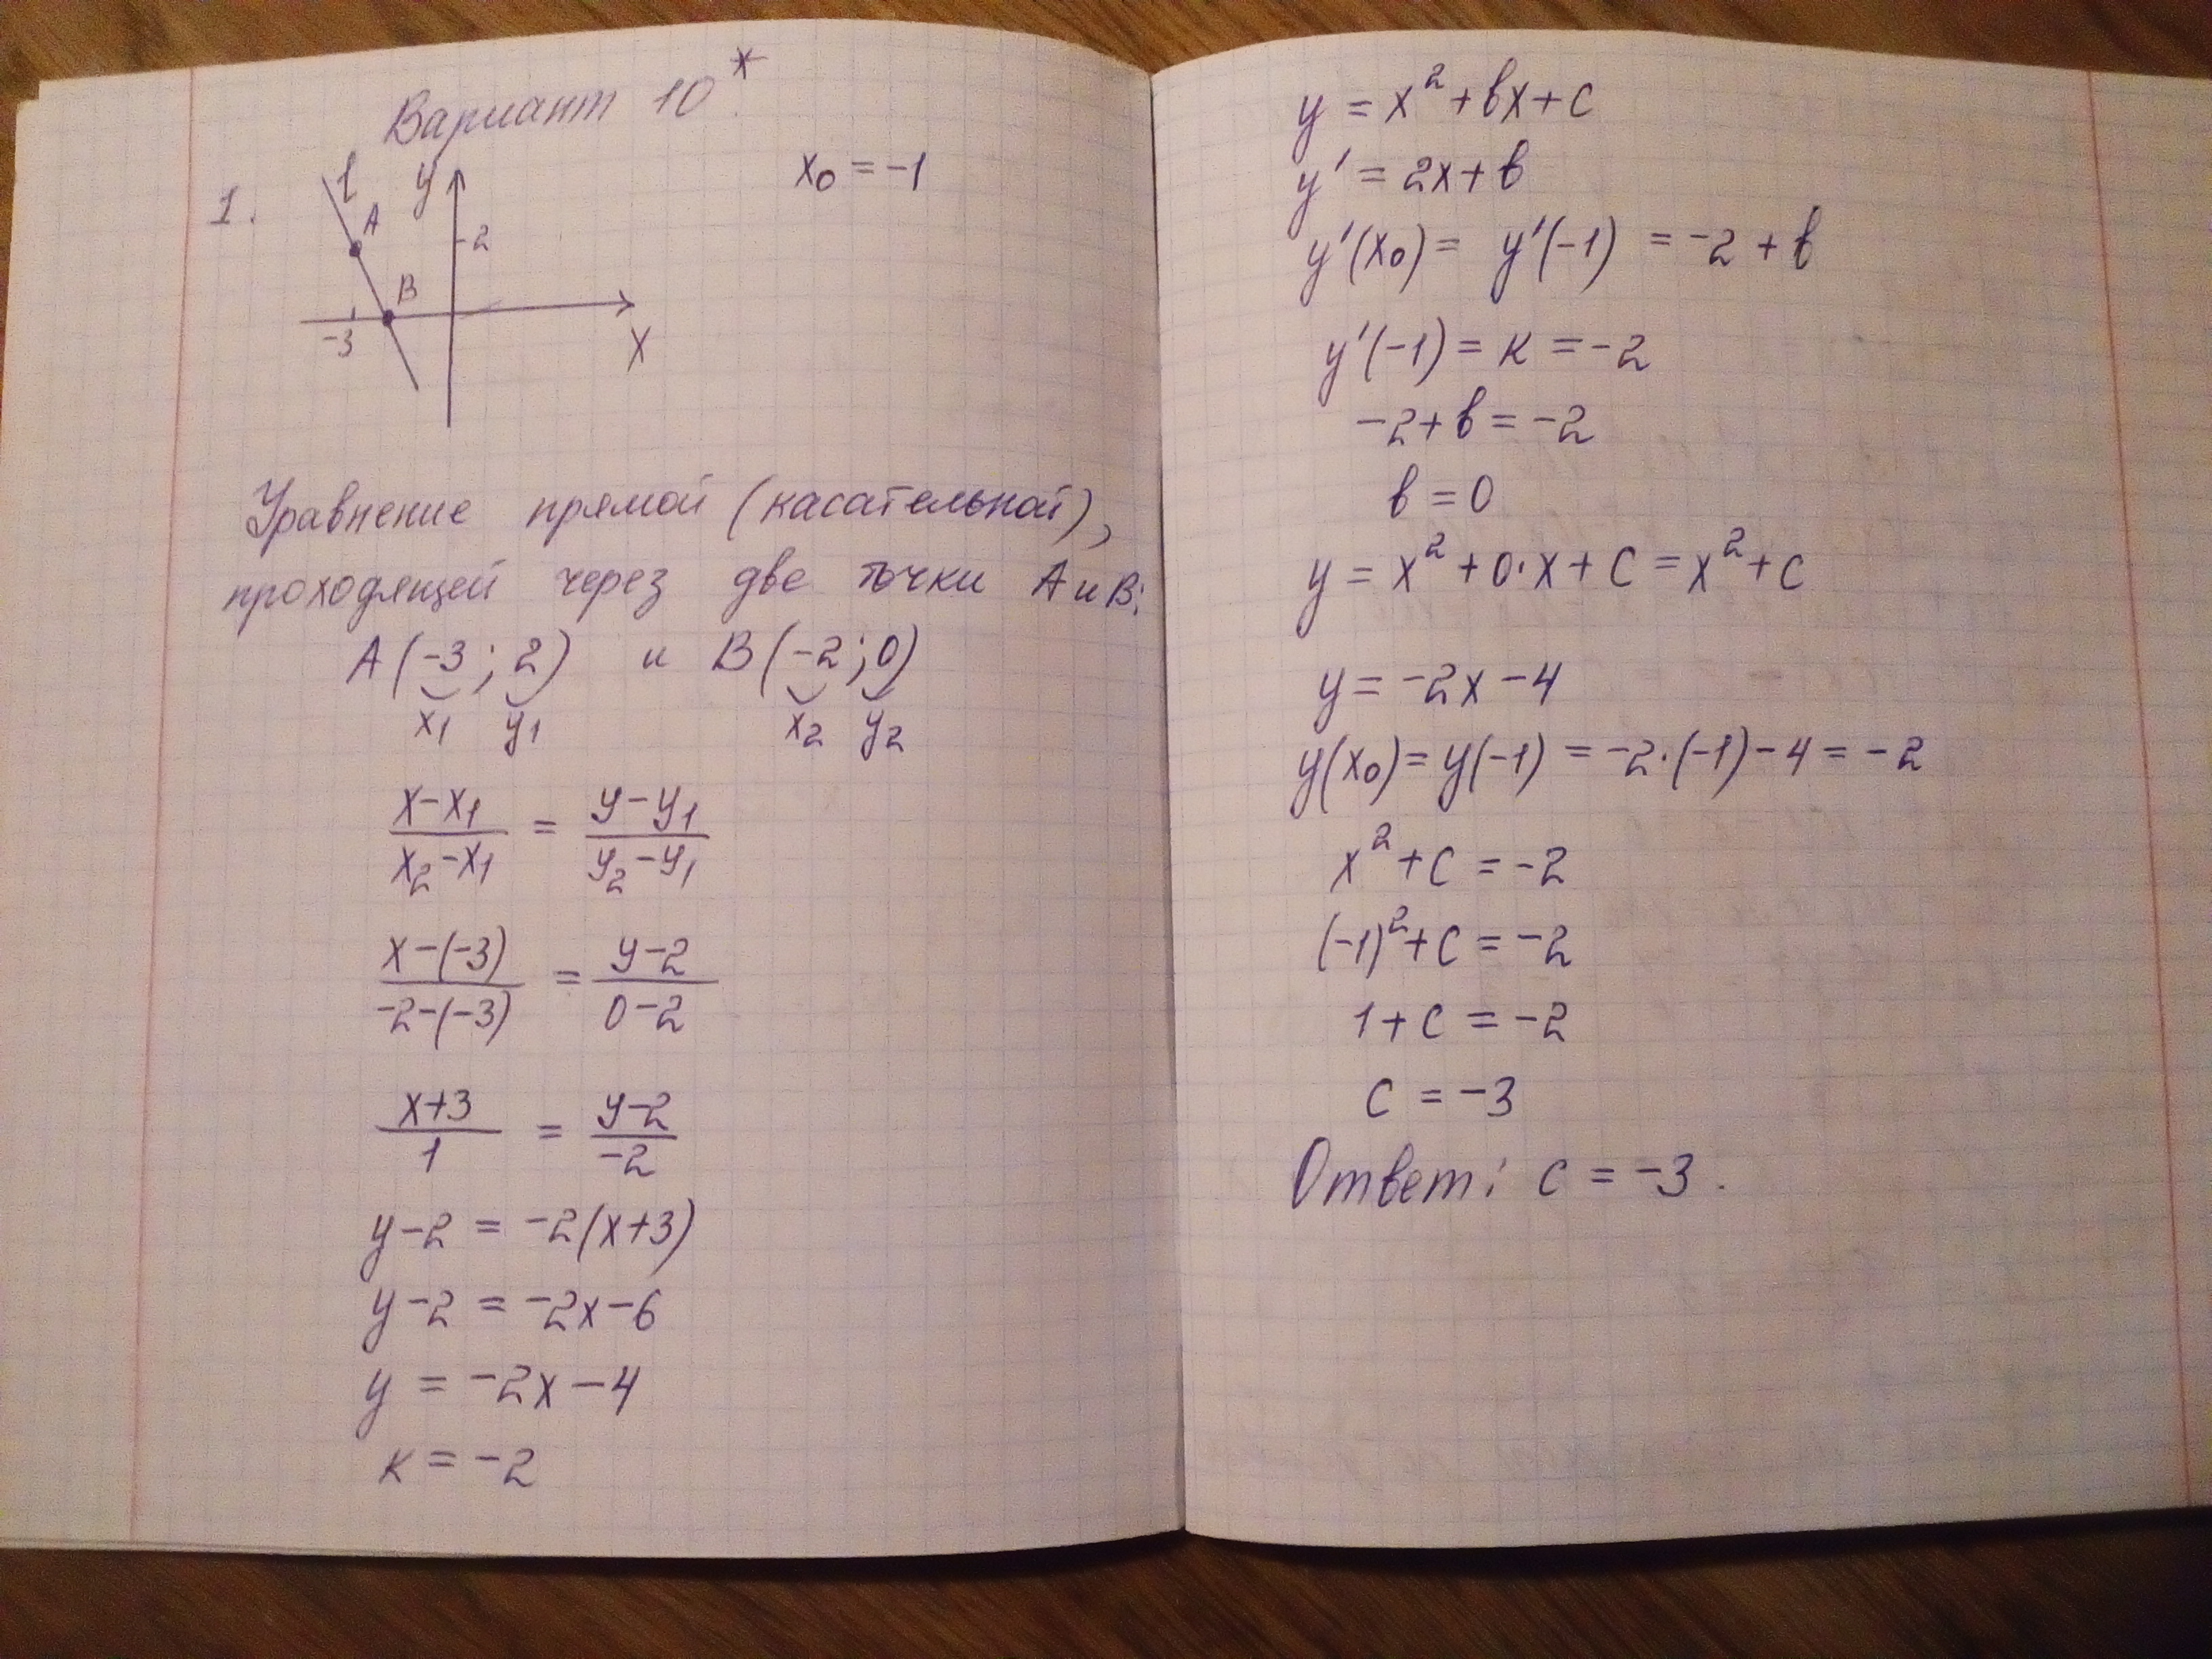 Вариант 10*
1.
l
y
x₀ = -1
A
2
B
-3
x
Уравнение прямой (касательной),
проходящей через две точки A и B:
A (-3 ; 2) и B (-2 ; 0)
x₁ y₁ x₂ y₂
(x-x₁)/(x₂-x₁) = (y-y₁)/(y₂-y₁)
(x-(-3))/(-2-(-3)) = (y-2)/(0-2)
(x+3)/1 = (y-2)/(-2)
y-2 = -2(x+3)
y-2 = -2x-6
y = -2x-4
к = -2
y = x² + вx + c
y' = 2x + в
y'(x₀) = y'(-1) = -2 + в
y'(-1) = к = -2
-2 + в = -2
в = 0
y = x² + 0·x + c = x² + c
y = -2x - 4
y(x₀) = y(-1) = -2·(-1) - 4 = -2
x² + c = -2
(-1)² + c = -2
1 + c = -2
c = -3
Ответ: c = -3.